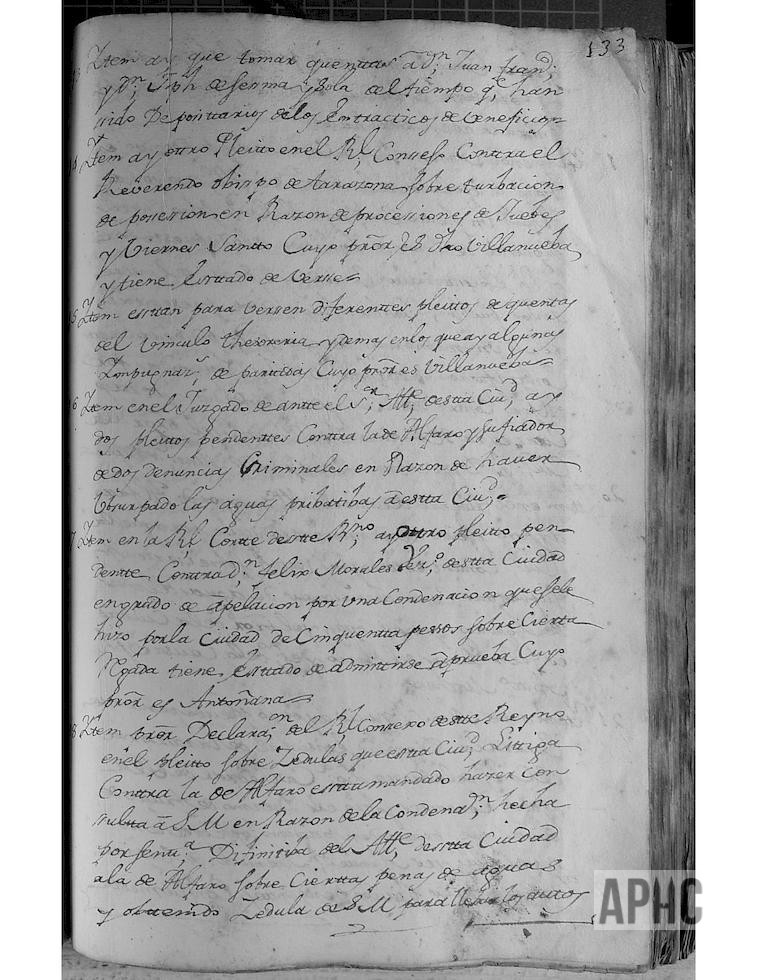 133
3 Ittem ay que tomar quenttas â Dn. Juan frand.
y Dn. Jph de serma y sola del tiempo qe han
sido Deposittarios de los Entracticos de benefiçion=
4 Ittem ay ottro Pleitto en el Rl. Consejo Contra el
Reverendo obispo de tarazona sobre turbacion
de possesion en Razon de processiones de Juebes
y Viernes Santto Cuyo pror. es dho Villanueba
y tiene Esttado de verse=
5 Ittem esttan para versen diferenttes pleittos de quentas
del vinculo thesoreria y demas en los que ay algunas
Impugnaz.s de parttidas Cuyo pror es Villanueba=
6 Ittem en el Juzgado de antte el Sr. Alle. de stta Ciud. ay
dos pleittos pendenttes Contra la de Alfaro y su fiador
de dos denuncias Criminales en Razon de haver
Usurpado las aguas pribatibas a esta Ciud.=
7 Ittem en la Rl. Cortte de stte Rno. ay ottro pleito pen-
dentte Contra dn. felix Morales Vezo. de stta Ciudad
en grado de apelacion por Una Condenacion que se le
hizo por la Ciudad de Cinquentta pessos sobre Cierta
Rogada tiene Esttado de admittirse â prueba Cuyo
pror es Antoñana=
8 Ittem pror Declaraon. del Rl Consexo de stte Reyno
en el pleitto sobre Zedulas que esta Ciud. Littiga
Conttra la de Alfaro esta mandado hazer Con
sulta â S M en Razon de la Condenaon. hecha
por sentta. Difinitiba del Alle. de stta Ciudad
a la de Alfaro sobre Ciertas penas de aguas
y obtenido Zedula de S M para llebar los autos
APHC